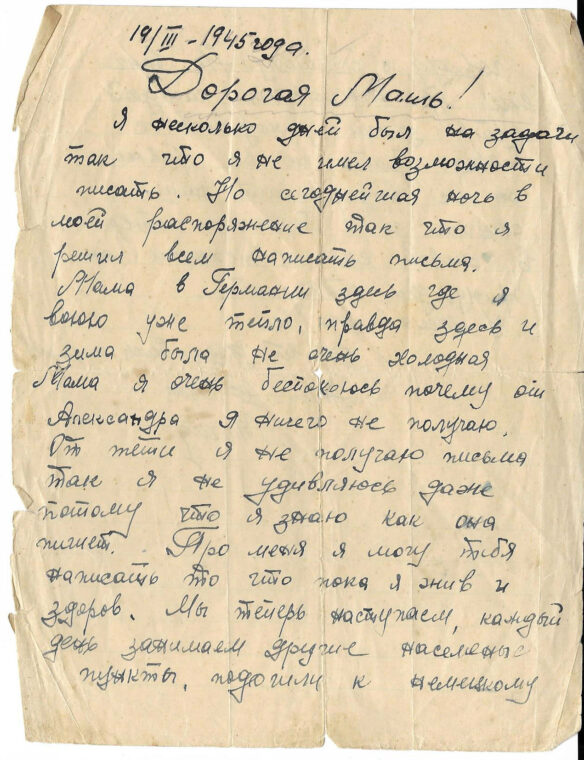 19/III-1945 года.
Дорогая Мать!
Я несколько дней был на задачи
так что я не имел возможности
писать. Но сегоднейшая ночь в
моей распоряжение так что я
решил всем написать письма.
Мама в Германии здесь где я
воюю уже тепло, правда здесь и
зима была не очень холодная
Мама я очень беспокоюсь почему от
Александра я ничего не получаю.
От тёти я не получаю письма
так я не удивляюсь даже
потому что я знаю как она
пишет. Про меня я могу тебя
написать то что пока я жив и
здоров. Мы теперь наступаем, каждый
день занимаем другие населеные
пункты, подошли к немецкому